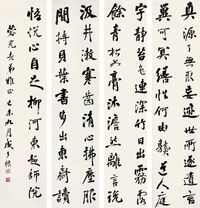 真源了無取妄迹世所逐遺言
冀可冥繕性何由熟道人庭
宇静苔色連深竹日出霧露
餘青松如膏沐澹然離言說
汲井漱寒齒清心拂塵服
閒持貝葉書步出東齋讀
悟悅心自足柳河東超師院
光老弟雅正 九月成多祿